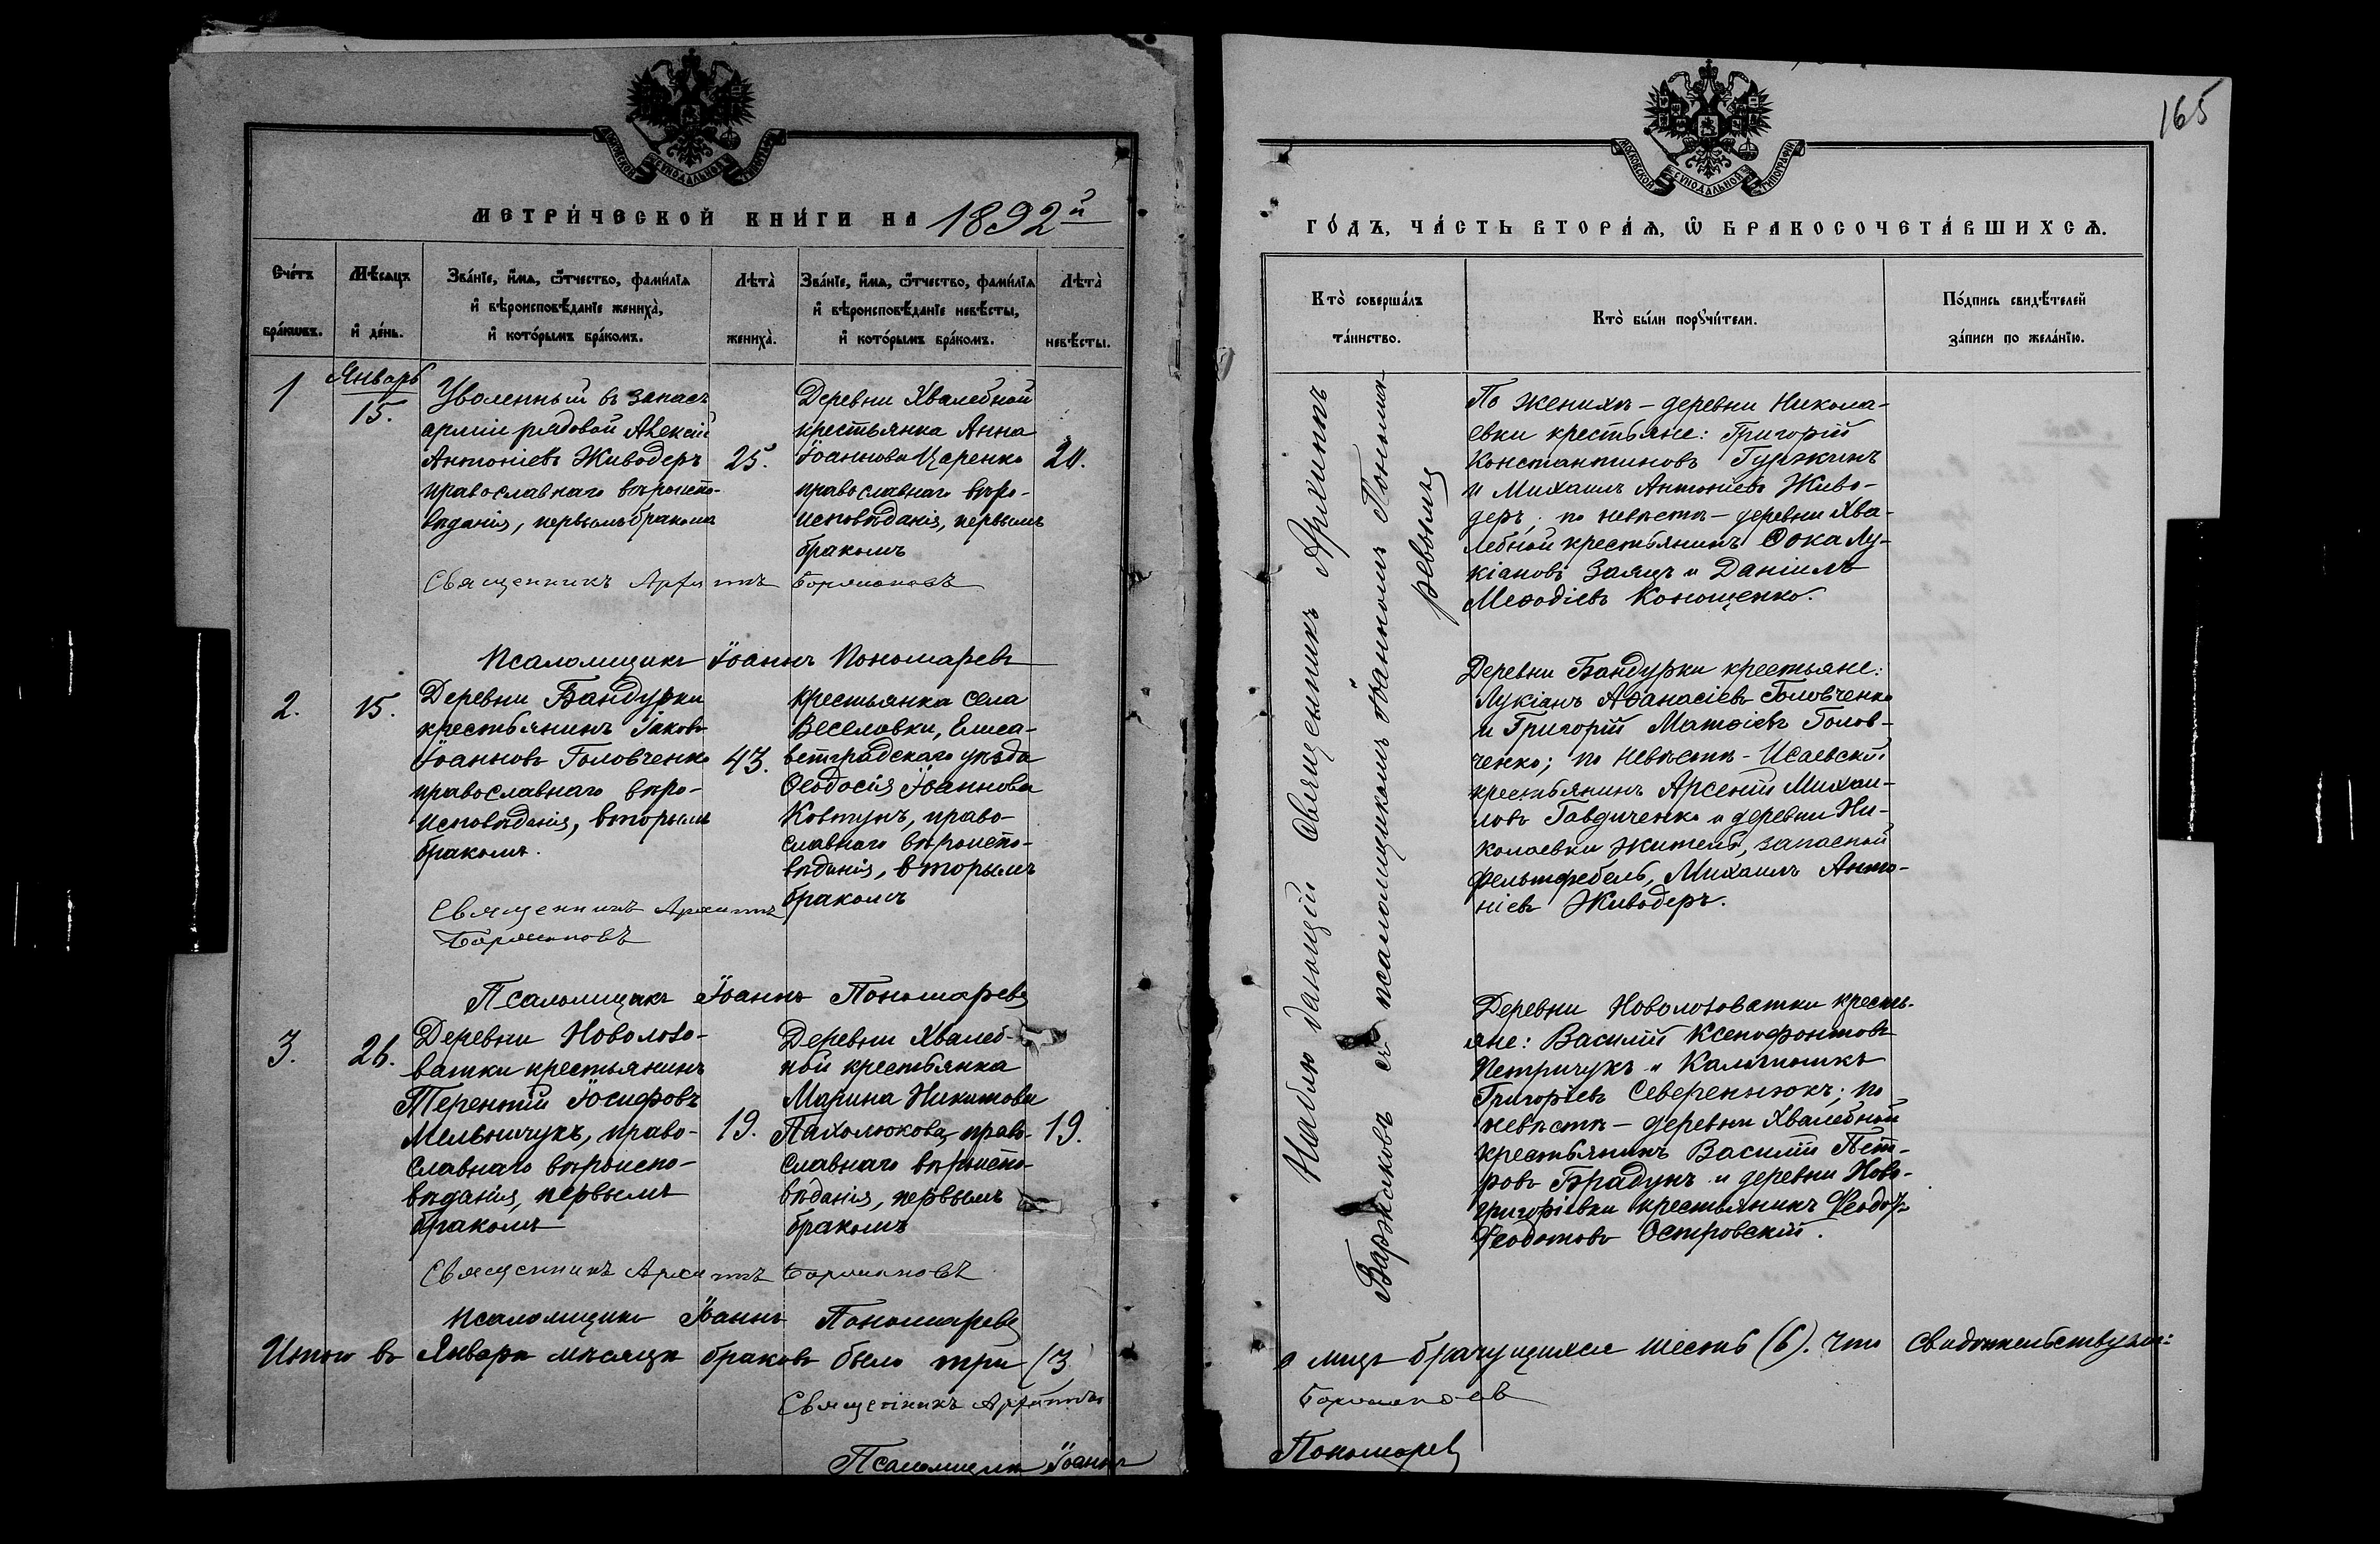 165
МОСКОВСКОЙ СѴНОДАЛЬНОЙ ТИПОГРАФІИ
МЕТРИ́ЧЕСКОЙ КНИ́ГИ НА 1892й
Сче́тъ бра́кѡвъ.
Мѣ́сѧцъ и҆ де́нь.
Зва́нїе, и҆́мѧ, ѻ҆́тчество, фами́лїѧ
и҆ вѣроисповѣ́данїе жениха̀,
и҆ кото́рымъ бра́комъ.
Лѣта̀ жениха̀.
Зва́нїе, и҆́мѧ, ѻ҆́тчество, фами́лїѧ
и҆ вѣроисповѣ́данїе невѣ́сты,
и҆ кото́рымъ бра́комъ.
Лѣта̀ невѣ́сты.
1
Январь
15.
Уволенный въ запасъ
арміи рядовой Алексій
Антоніевъ Живодеръ
православнаго вѣроиспо-
вѣданія, первымъ бракомъ
25.
Деревни Хвалебной
крестьянка Анна
Іоаннова Царенко
православнаго вѣро-
исповѣданія, первымъ
бракомъ
20.
Священникъ Архиппъ Баржаковъ
Псаломщикъ Іоаннъ Пономаревъ
2.
15.
Деревни Бандурки
крестьянинъ Іаковъ
Іоанновъ Головченко
православнаго вѣро-
исповѣданія, вторымъ
бракомъ.
43.
крестьянка села
Веселовки, Елиса-
ветградскаго уѣзда
Ѳеодосія Іоаннова
Ковтунъ, право-
славнаго вѣроиспо-
вѣданія, вторымъ
бракомъ
Священникъ Архиппъ
Баржаковъ
Псаломщикъ Іоаннъ Пономаревъ
3.
26.
Деревни Новолозо-
ватки крестьянинъ
Терентій Іосифовъ
Мельничукъ, право-
славнаго вѣроиспо-
вѣданія, первымъ
бракомъ
19.
Деревни Хвалеб-
ной крестьянка
Марина Никитова
Пахолюкова, право-
славнаго вѣроиспо-
вѣданія, первымъ
бракомъ
19.
Священникъ Архиппъ Баржаковъ
Псаломщикъ Іоаннъ Пономаревъ
Итого въ Январѣ мѣсяцѣ браковъ было три (3)
Священникъ Архиппъ
Псаломщикъ Іоаннъ
МОСКОВСКОЙ СѴНОДАЛЬНОЙ ТИПОГРАФІИ
ГО́ДЪ, ЧА́СТЬ ВТОРА́Ѧ, Ѡ҆ БРАКОСОЧЕТА́ВШИХСѦ.
Кто̀ соверша́лъ
та́инство.
Кто̀ бы́ли порꙋчи́тели.
По́дпись свидѣ́телей
за́писи по жела́нїю.
Наблюдающій Священникъ Архиппъ
Баржаковъ съ псаломщикомъ Іоанномъ Понома-
ревымъ
По женихѣ – деревни Никола-
евки крестьяне: Григорій
Константиновъ Гуржинъ
и Михаилъ Антоніевъ Живо-
деръ; по невѣстѣ – деревни Хва-
лебной крестьянинъ Ѳока Лу-
кіановъ Заяцъ и Даніилъ
Меѳодіевъ Конощенко.
Деревни Бандурки крестьяне:
Лукіанъ Аѳанасіевъ Головченко
и Григорій Матѳіевъ Голов-
ченко; по невѣстѣ – Исаевскій
крестьянинъ Арсеній Михаи-
ловъ Гавдиченко и деревни Ни-
колаевки житель, запасной
фельтфебель, Михаилъ Анто-
ніевъ Живодеръ.
Деревни Новолозоватки кресть-
яне: Василій Ксенофонтовъ
Петричукъ и Каллиникъ
Григоріевъ Северенюкъ; по
невѣстѣ – деревни Хвалебной
крестьянинъ Василій Пет-
ровъ Брадунъ и деревни Ново-
григорівки крестьянинъ Ѳеодотъ
Ѳеодотовъ Островскій.
а лицъ брачущихся шесть (6). Что свидѣтельствуемъ:
Баржаковъ
Пономаревъ